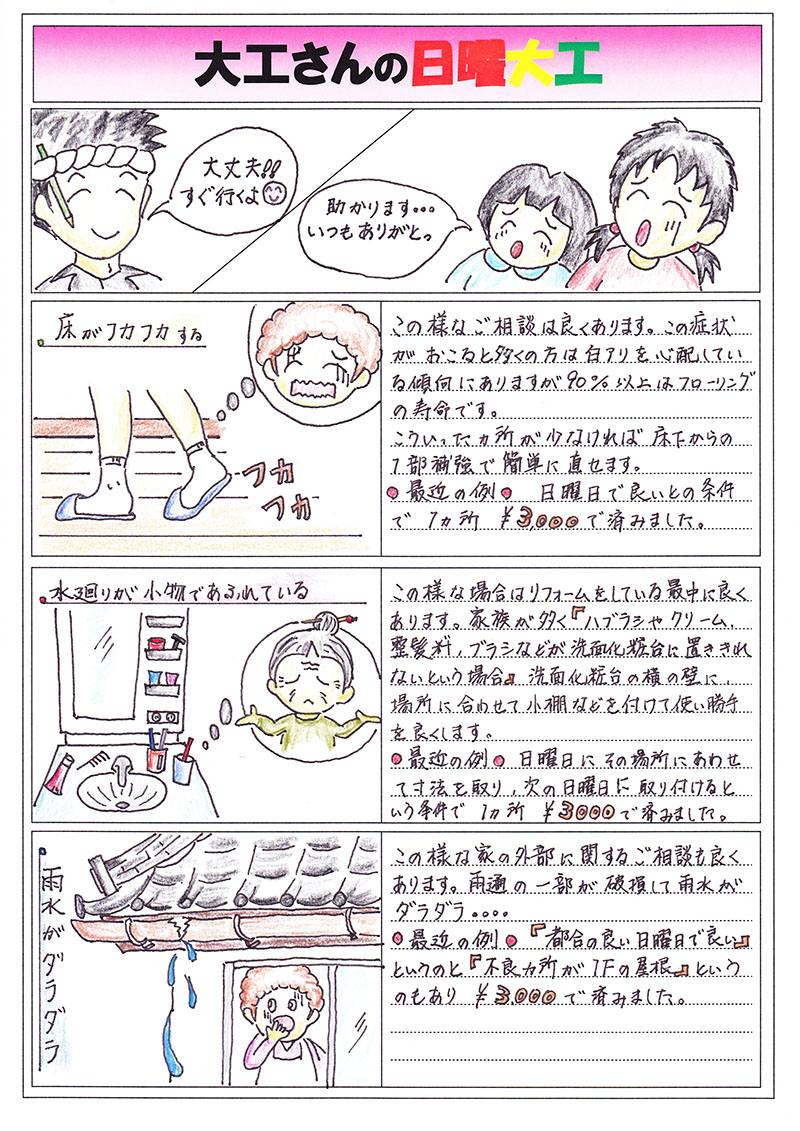 大工さんの日曜大工
大丈夫!!
すぐ行くよ
助かります・・・
いつもありがとっ
床がフカフカする
フカ
フカ
この様なご相談は良くあります。この症状
がおこると多くの方は白アリを心配してい
る傾向にありますが90%以上はフローリング
の寿命です。
こういったカ所が少なければ床下からの
1部補強で簡単に直せます。
最近の例 日曜日で良いとの条件
で 1ヵ所 ¥3,000で済みました。
水廻りが小物であふれている
この様な場合はリフォームをしている最中に良く
あります。家族が多く『ハブラシやクリーム,
整髪料,ブラシなどが洗面化粧台に置ききれ
ないという場合』洗面化粧台の横の壁に,
場所に合わせて小棚などを付けて使い勝手
を良くします。
最近の例 日曜日にその場所にあわせ
て寸法を取り,次の日曜日に取り付けると
いう条件で 1ヵ所 ¥3000で済みました。
雨水がダラダラ
この様な家の外部に関するご相談も良く
あります。雨樋の一部が破損して雨水が
ダラダラ・・・・
最近の例 『都合の良い日曜日で良い』
というのと『不良カ所が1Fの屋根』という
のもあり ¥3.000で済みました。